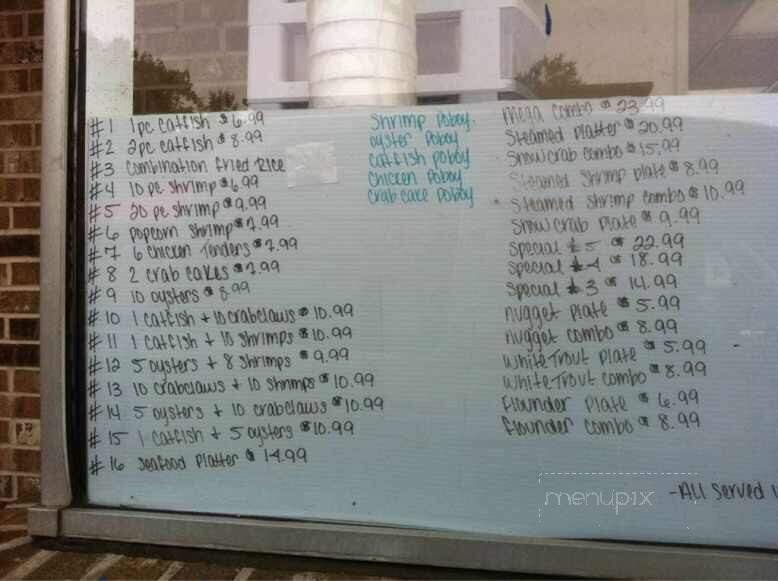 #1 1pc catfish $6.99
#2 2pc catfish $8.99
#3 combination fried Rice
#4 10 pc shrimp $6.99
#5 20 pc shrimp $9.99
#6 popcorn shrimp $7.99
#7 6 chicken Tenders $7.99
#8 2 crab cakes $7.99
#9 10 oysters $8.99
#10 1 catfish + 10 crabclaws $10.99
#11 1 catfish + 10 shrimps $10.99
#12 5 oysters + 8 shrimps $9.99
#13 10 crabclaws + 10 shrimps $10.99
#14 5 oysters + 10 crabclaws $10.99
#15 1 catfish + 5 oysters $10.99
#16 seafood Platter $14.99
Shrimp Poboy
oyster Poboy
catfish poboy
chicken Poboy
crab cake Poboy
Mega Combo $23.99
Steamed Platter $20.99
Snowcrab combo $15.99
Steamed Shrimp plate $8.99
Steamed Shrimp combo $10.99
Snow crab Plate $9.99
Special #5 $22.99
Special #4 $18.99
Special #3 $14.99
nugget Plate $5.99
nugget combo $8.99
White Trout Plate $5.99
White Trout combo $8.99
Flounder Plate $6.99
flounder combo $8.99
-All Served
menupix